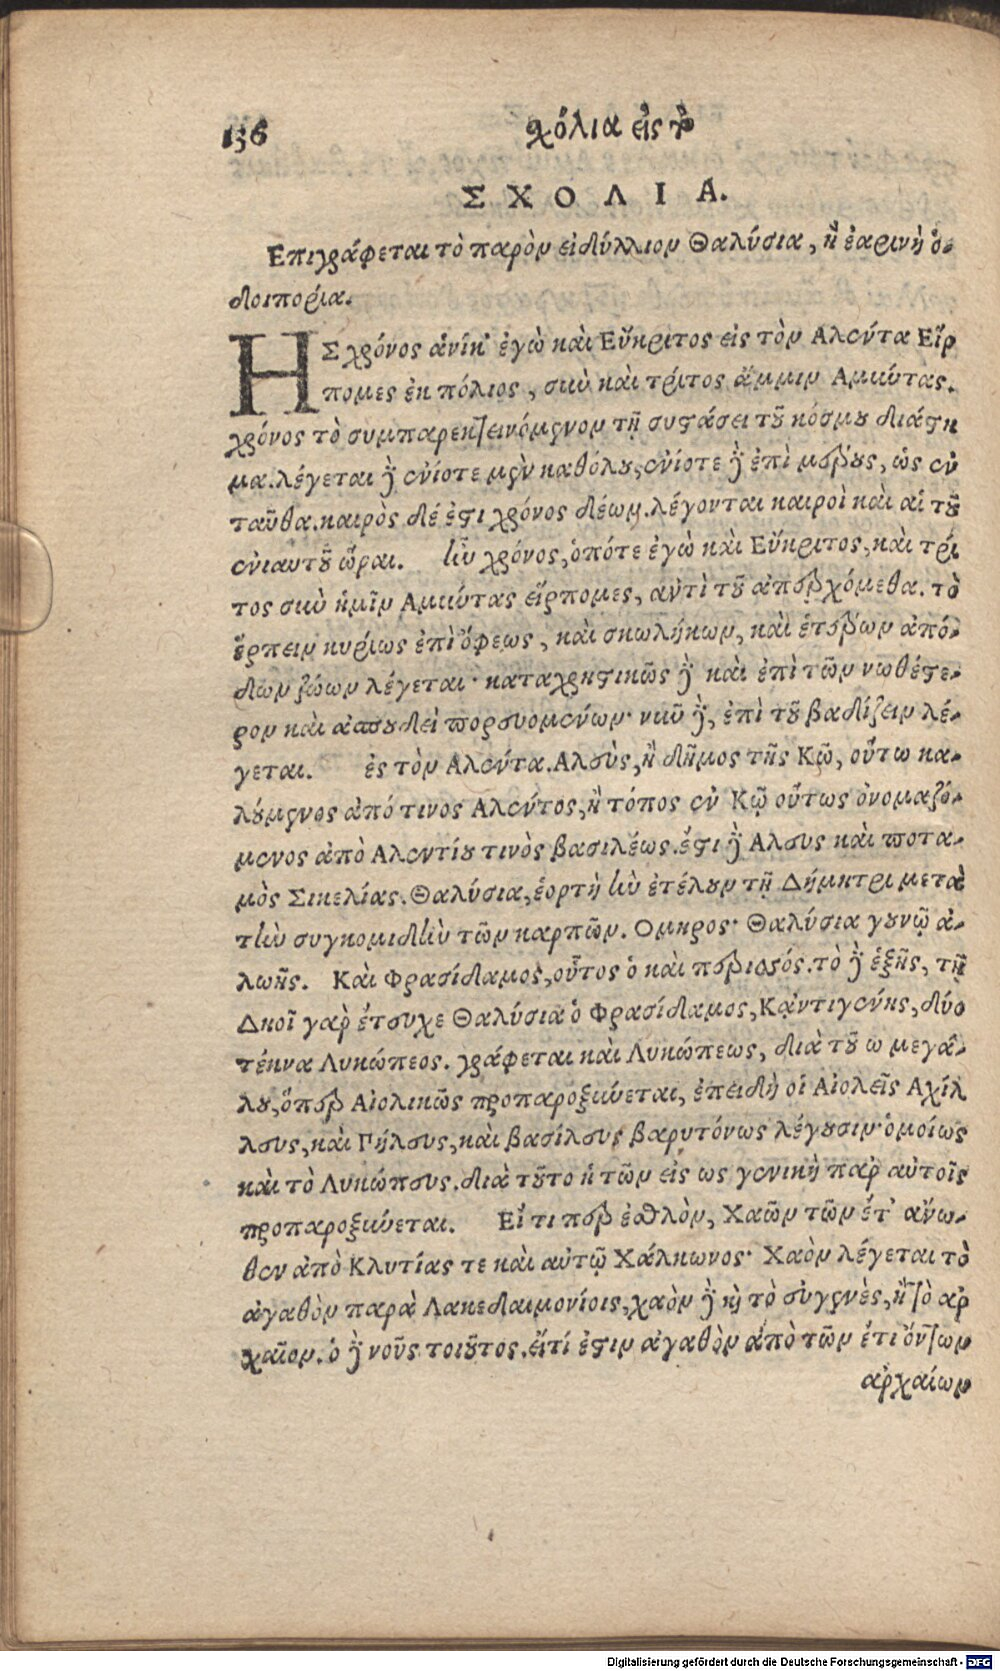 136 χόλια εἰς τὸ
ΣΧΟΛΙΑ.
Επιγράφεται τὸ παρὸν εἰδύλλιον Θαλύσια, ἢ ἐαρινὴ ὁ-
δοιπορία.
ΗΣ χρόνος ἁνίκ' ἐγὼ καὶ Εὔκριτος εἰς τὸν Αλεντα Εἵρ
πομες ἐκ πόλιος, σὺν καὶ τρίτος ἄμμιν Αμύντας.
χρόνος τὸ συμπαρεκτεινόμενον τῇ συστάσει τοῦ κόσμου διάστη
μα. λέγεται δὲ ἐνίοτε μὲν καθόλου, ἐνίοτε δὲ ἐπὶ μέρους, ὡς ἐν
ταῦθα. καιρὸς δέ ἐστι χρόνος δέων. λέγονται καιροὶ καὶ αἱ τοῦ
ἐνιαυτοῦ ὧραι. ἦν χρόνος, ὁπότε ἐγὼ καὶ Εὔκριτος, καὶ τρί
τος σὺν ἡμῖν Αμύντας εἵρπομες, ἀντὶ τοῦ ἀπερχόμεθα. τὸ
ἕρπειν κυρίως ἐπὶ ὄφεως, καὶ σκωλήκων, καὶ ἑτέρων ἀπό-
δων ζώων λέγεται· καταχρηστικῶς δὲ καὶ ἐπὶ τῶν νωθέστε-
ρον καὶ ἀσπουδεὶ πορευομένων· νῦν δὲ, ἐπὶ τοῦ βαδίζειν λέ-
γεται. ἐς τὸν Αλεντα. Αλεὺς, ἢ δῆμος τῆς Κῶ, οὕτω κα-
λούμενος ἀπό τινος Αλεντος, ἢ τόπος ἐν Κῷ οὕτως ὀνομαζό-
μενος ἀπὸ Αλεντίου τινὸς βασιλέως. ἔστι δὲ Αλευς καὶ ποτα-
μὸς Σικελίας. Θαλύσια, ἑορτὴ ἣν ἐτέλουν τῇ Δήμητρι μετὰ
τὴν συγκομιδὴν τῶν καρπῶν. Ομηρος· Θαλύσια γουνῷ ἀ-
λωῆς. Καὶ Φρασίδαμος, οὗτος ὁ καὶ περισσός. τὸ δὲ ἑξῆς, τῇ
Δηοῖ γὰρ ἔτευχε Θαλύσια ὁ Φρασίδαμος, Κᾀντιγένης, δύο
τέκνα Λυκώπεος. γράφεται καὶ Λυκώπεως, διὰ τοῦ ω μεγά-
λου, ὅπερ Αἰολικῶς προπαροξύνεται, ἐπειδὴ οἱ Αἰολεῖς Αχίλ
λευς, καὶ Πήλευς, καὶ βασίλευς βαρυτόνως λέγουσιν· ὁμοίως
καὶ τὸ Λυκώπευς. διὰ τοῦτο ἡ τῶν εἰς ως γενικὴ παρ' αὐτοῖς
προπαροξύνεται. Εἴ τι περ ἐσθλὸν, Χαῶν τῶν ἔτ' ἄνω-
θεν ἀπὸ Κλυτίας τε καὶ αὐτῷ Χάλκωνος· Χαὸν λέγεται τὸ
ἀγαθὸν παρὰ Λακεδαιμονίοις, χαὸν δὲ καὶ τὸ εὐγενὲς, ἢ τὸ ἀρ
χαῖον. ὁ δὲ νοῦς τοιοῦτος. εἴ τί ἐστιν ἀγαθὸν ἀπὸ τῶν ἔτι ὄντων
ἀρχαίων